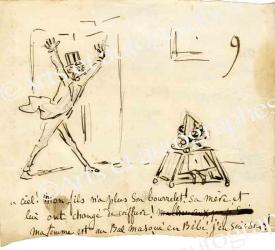 9
„ ciel! mon fils n'a plus son bourrelet! sa mère et
lui ont changé de coiffure!
ma femme est au Bal masqué en Bébé! j'en suis sûr!